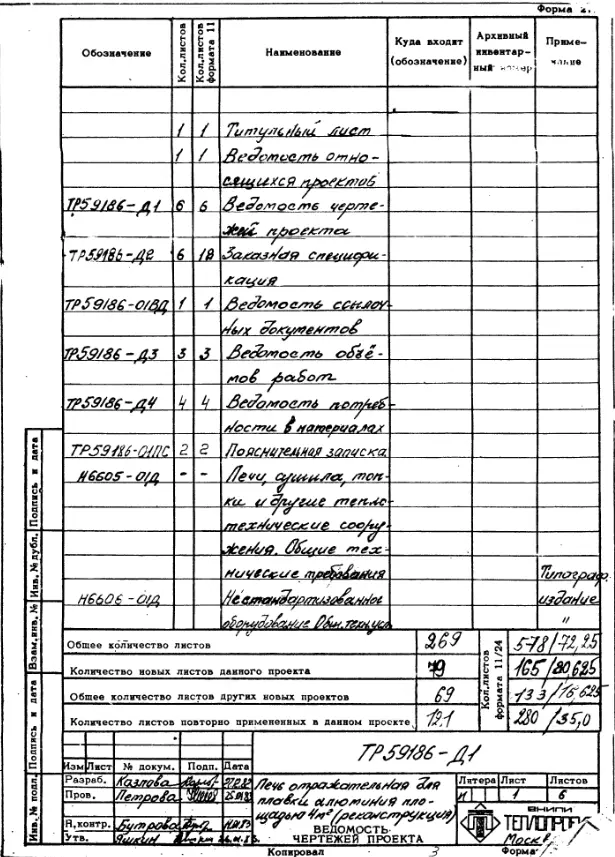 Форма 2.
Обозначение Кол.листов Кол.листов формата 11 Наименование Куда входит (обозначение) Архивный инвентарный номер Примечание
1 1 Титульный лист
1 1 Ведомость отно-
сящихся проектов
ТР59186-Д1 6 6 Ведомость черте-
жей проекта
ТР59186-Д2 6 18 Заказная специфи-
кация
ТР59186-01ВД 1 1 Ведомость ссылоч-
ных документов
ТР59186-Д3 3 3 Ведомость объё-
мов работ
ТР59186-Д4 4 4 Ведомость потреб-
ности в материалах
ТР59186-01ПС 2 2 Пояснительная записка
Н6605-01Д - - Печи, сушила, топ-
ки и другие тепло-
технические соору-
жения. Общие тех-
нические требования Типограф.
Н6606-01Д Нестандартизованное издание
оборудование Общ. техн. усл. "
Общее количество листов 269 578/72,25
Количество новых листов данного проекта 79 165/20,625
Общее количество листов других новых проектов 69 133/16,625
Количество листов повторно примененных в данном проекте 121 280/35,0
Кол.листов формата 11/24
ТР59186-Д1
Изм Лист № докум. Подп. Дата
Разраб. Казлова
Пров. Петрова 25.01.83
Н.контр. Бутрова 11.01.83
Утв. Яшкин
Печь отражательная для
плавки алюминия пло-
щадью 4м² (реконструкция)
ВЕДОМОСТЬ
ЧЕРТЕЖЕЙ ПРОЕКТА
Литера Лист Листов
И 1 6
ВНИПИ
ТЕПЛОПРОЕКТ
Москва
Копировал 3 Форма
Инв.№ подл. Подпись и дата Взам.инв.№ Инв.№ дубл. Подпись и дата